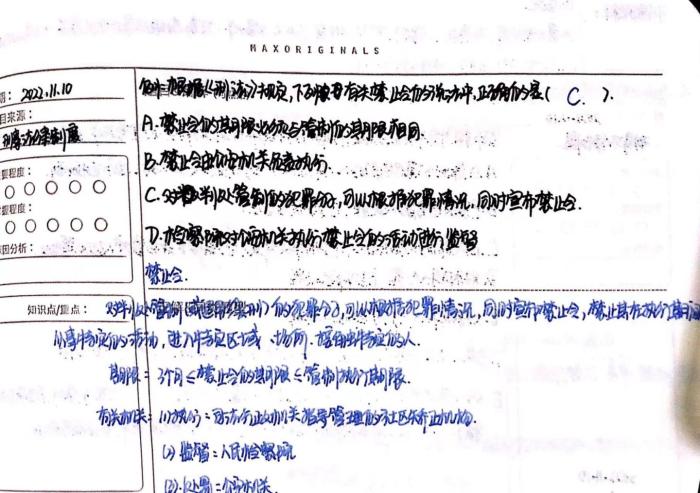 MAXORIGINALS
期：2022.11.10
目来源：
例1. 根据《刑法》规定，下列有关禁止令的说法中，正确的是（ C. ）.
A. 禁止令的期限必须与管制的期限相同
B. 禁止令由公安机关负责执行
C. 对被判处管制的犯罪分子，可以根据犯罪情况，同时宣布禁止令.
D. 检察院对公安机关执行禁止令的活动进行监督
要程度：
握程度：
因分析：
禁止令.
知识点/重点：
对判处管制（或适用缓刑）的犯罪分子，可以根据犯罪情况，同时宣布禁止令，禁止其在执行期间
从事特定的活动，进入特定区域、场所，接触特定的人.
期限 = 3个月 ≤ 禁止令的期限 ≤ 管制执行期限.
有关机关：(1) 执行：司法行政机关指导管理的社区矫正机构.
(2) 监督：人民检察院
(3) 处罚：公安机关.